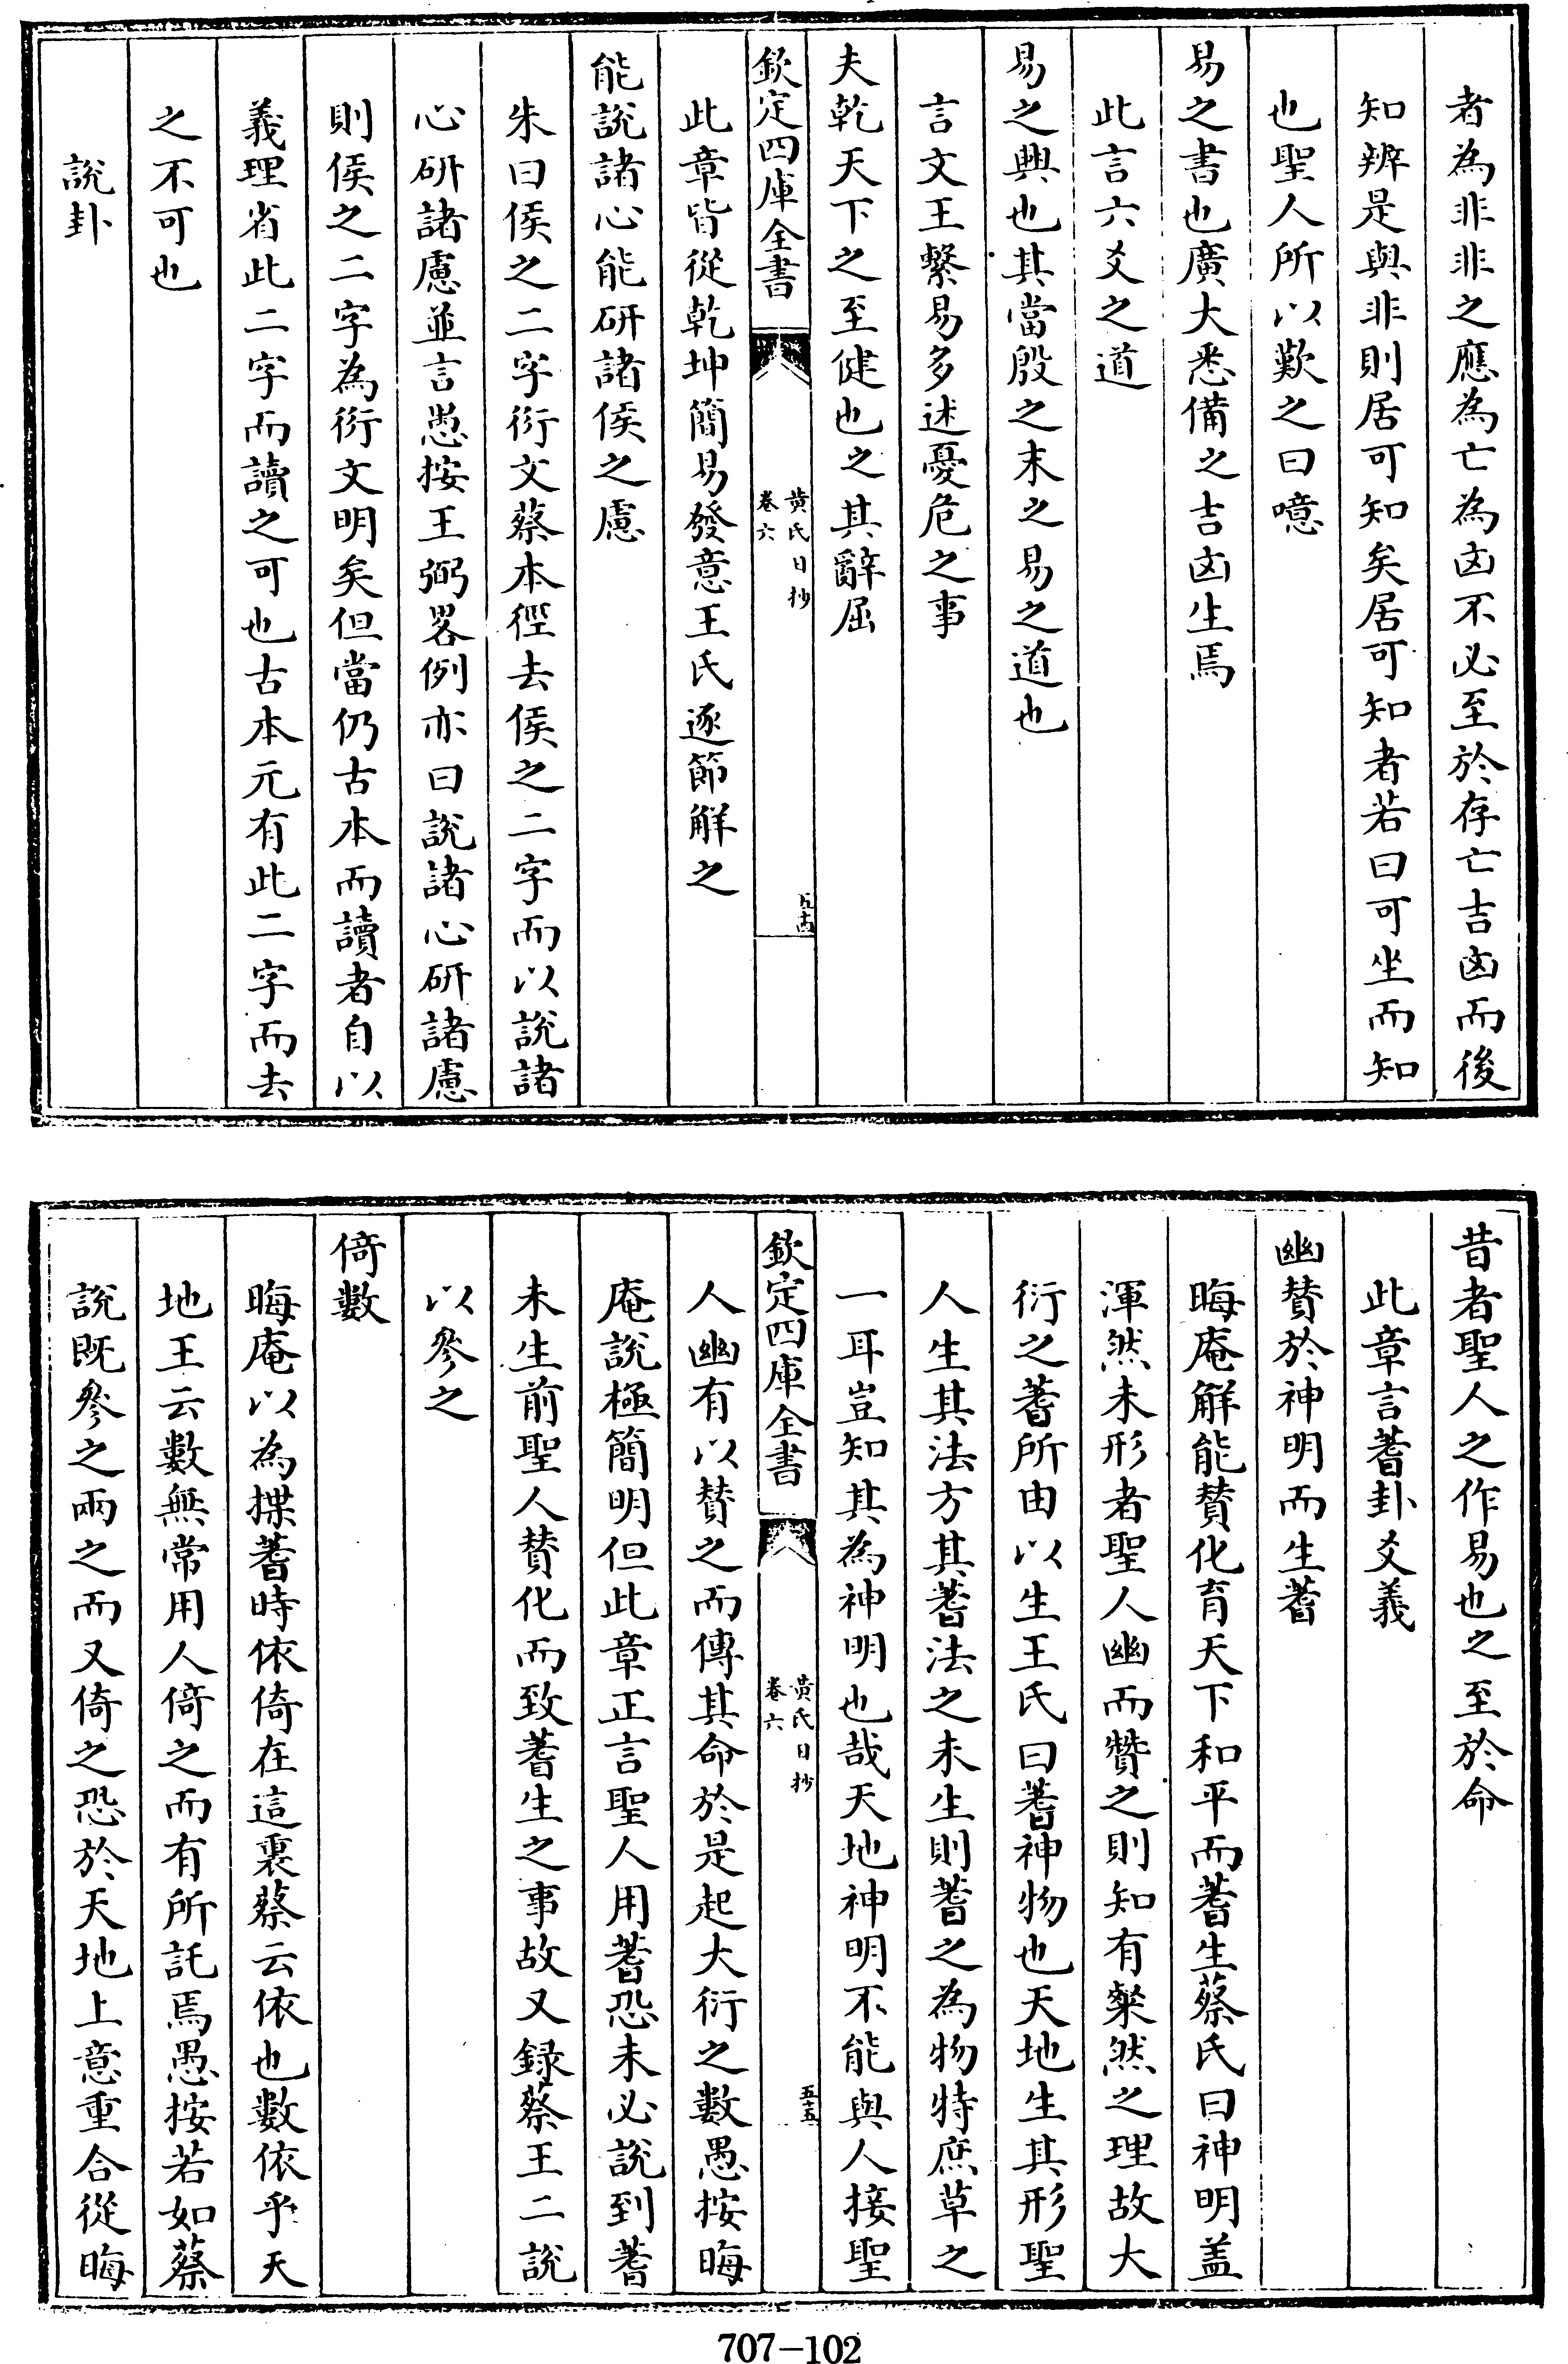 者為非非之應為亡為㐫不必至於存亡吉㐫而後
知辨是與非則居可知矣居可知者若曰可坐而知
也聖人所以歎之曰噫
易之書也廣大悉備之吉㐫生焉
此言六爻之道
易之興也其當殷之末之易之道也
言文王繫易多述憂危之事
夫乾天下之至健也之其辭屈
欽定四庫全書
黄氏日抄
卷六
五十四
此章皆從乾坤簡易發意王氏逐節解之
能說諸心能研諸侯之慮
朱曰侯之二字衍文蔡本徑去侯之二字而以說諸
心研諸慮並言愚按王弼畧例亦曰說諸心研諸慮
則侯之二字為衍文明矣但當仍古本而讀者自以
義理省此二字而讀之可也古本元有此二字而去
之不可也
說卦
昔者聖人之作易也之至於命
此章言蓍卦爻義
幽賛於神明而生蓍
晦庵解能賛化育天下和平而蓍生蔡氏曰神明盖
渾然未形者聖人幽而贊之則知有粲然之理故大
衍之蓍所由以生王氏曰蓍神物也天地生其形聖
人生其法方其蓍法之未生則蓍之為物特庶草之
一耳豈知其為神明也哉天地神明不能與人接聖
欽定四庫全書
黄氏日抄
卷六
五十五
人幽有以賛之而傳其命於是起大衍之數愚按晦
庵說極簡明但此章正言聖人用蓍恐未必說到蓍
未生前聖人賛化而致蓍生之事故又録蔡王二說
以參之
倚數
晦庵以為揲蓍時依倚在這裏蔡云依也數依乎天
地王云數無常用人倚之而有所託焉愚按若如蔡
說既參之兩之而又倚之恐於天地上意重合從晦
707-102